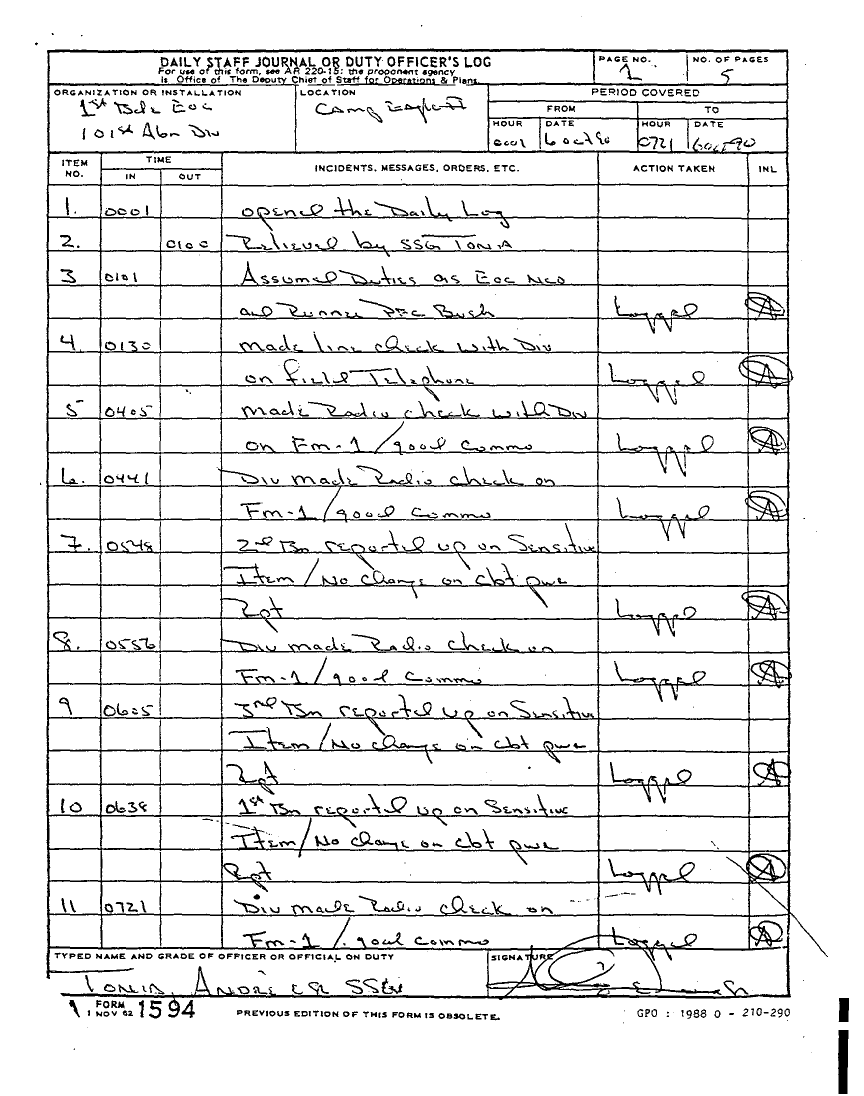 DAILY STAFF JOURNAL OR DUTY OFFICER'S LOG
For use of this form, see AR 220-15: the proponent agency
is Office of The Deputy Chief of Staff for Operations & Plans.
PAGE NO.
1
NO. OF PAGES
5
ORGANIZATION OR INSTALLATION
1st Bde EOC
101st Abn Div
LOCATION
Camp Eagle II
PERIOD COVERED
FROM
TO
HOUR DATE HOUR DATE
0001 6 Oct 90 0721 6 Oct 90
ITEM NO. TIME INCIDENTS, MESSAGES, ORDERS, ETC. ACTION TAKEN INL
IN OUT
1. 0001 opened the Daily Log
2. 0100 Relieved by SSG Tonia
3 0101 Assumed Duties as EOC NCO
and Runner PFC Bush Logged
4. 0130 made line check with Div
on field Telephone Logged
5 0405 made Radio check with Div
on Fm-1/good Commo Logged
6. 0441 Div made Radio check on
Fm-1/good Commo Logged
7. 0548 2nd Bn reported up on Sensitive
Item/No change on cbt pwr
Rpt Logged
8. 0556 Div made Radio check on
Fm-1/good Commo Logged
9 0605 3rd Bn reported up on Sensitive
Item/No change on cbt pwr
Rpt Logged
10 0638 1st Bn reported up on Sensitive
Item/No change on cbt pwr
Rpt Logged
11 0721 Div made Radio check on
Fm-1/good Commo Logged
TYPED NAME AND GRADE OF OFFICER OR OFFICIAL ON DUTY
SIGNATURE
Tonia, Andre SSG
FORM
1 NOV 62 1594
PREVIOUS EDITION OF THIS FORM IS OBSOLETE.
GPO : 1988 O - 210-290